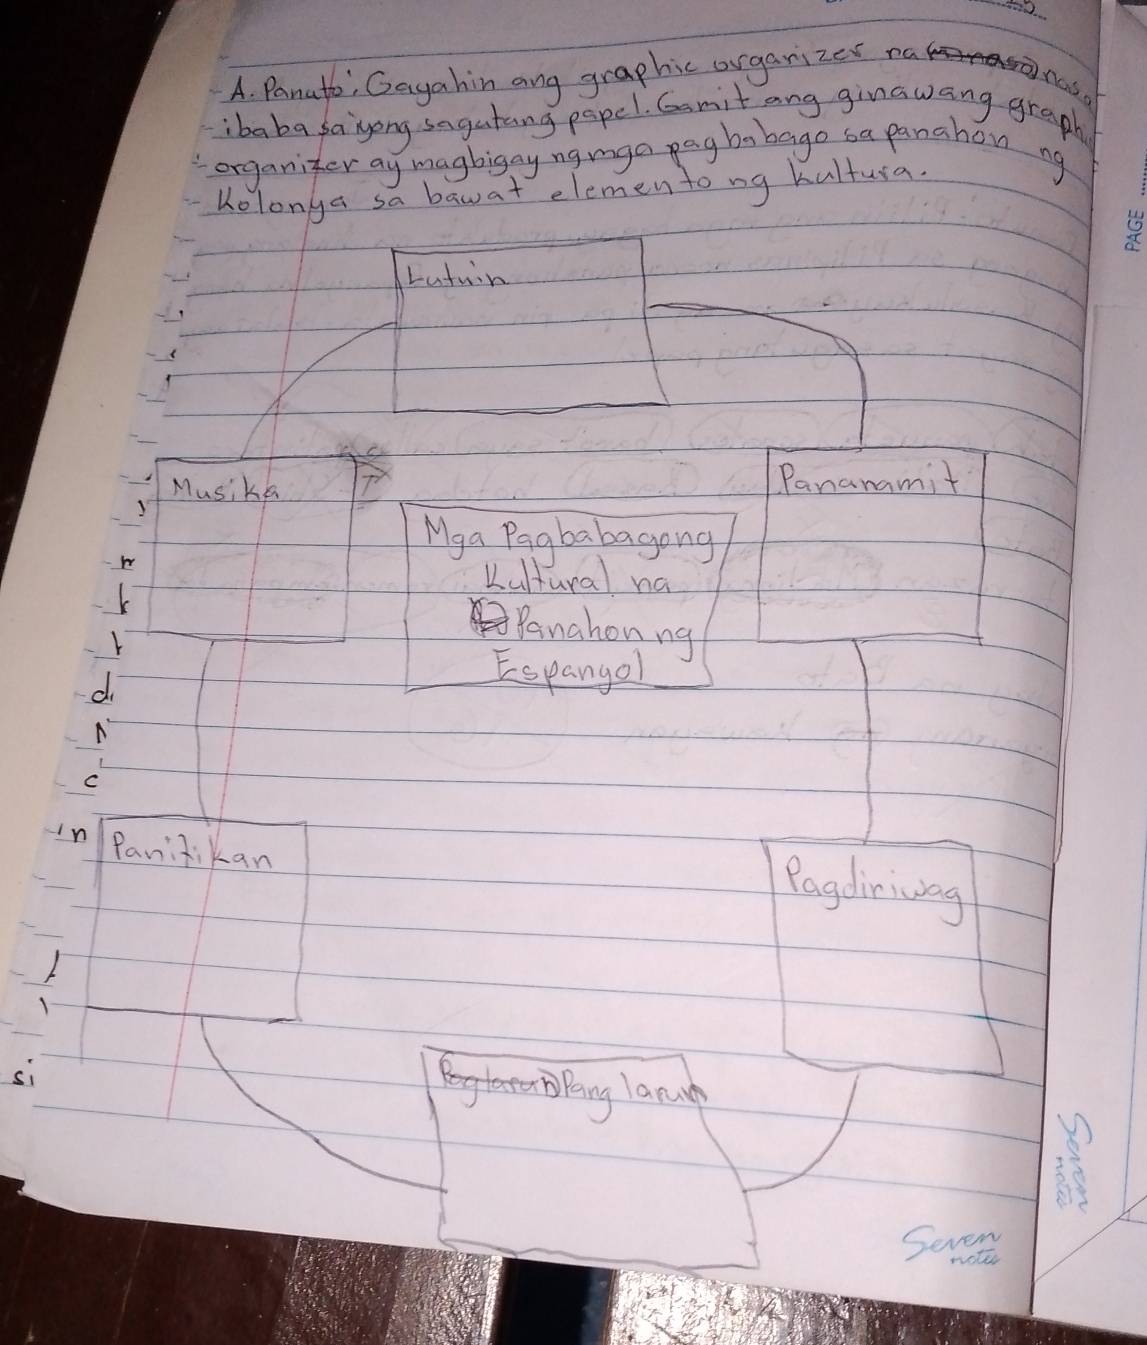 A. Panuto: Gayahin ang graphic organizer na nasa
ibaba sa iyong sagutang papel. Gamit ang ginawang graphic
organizer ay magbigay ng mga pagbabago sa panahon ng
Kolonya sa bawat elemento ng kultura.
Lutuin
Musika
Pananamit
Mga Pagbabagong
Kultural na
Panahon ng
Espangol
Panitikan
Pagdiriwag
Pang larun
PAGE
Seven
notes
Seven
notes